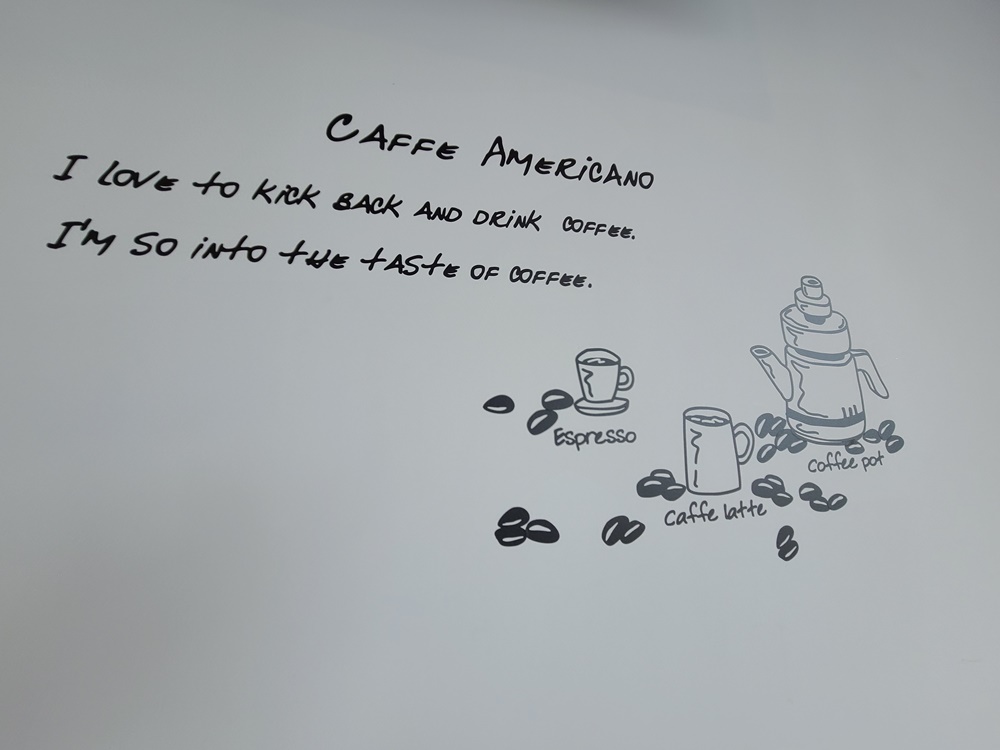 CAFFE AMERICANO
I LOVE to KICK BACK AND DRINK COFFEE.
I'M SO INTO tHE tAStE OF COFFEE.
Espresso
Caffe latte
Coffee pot